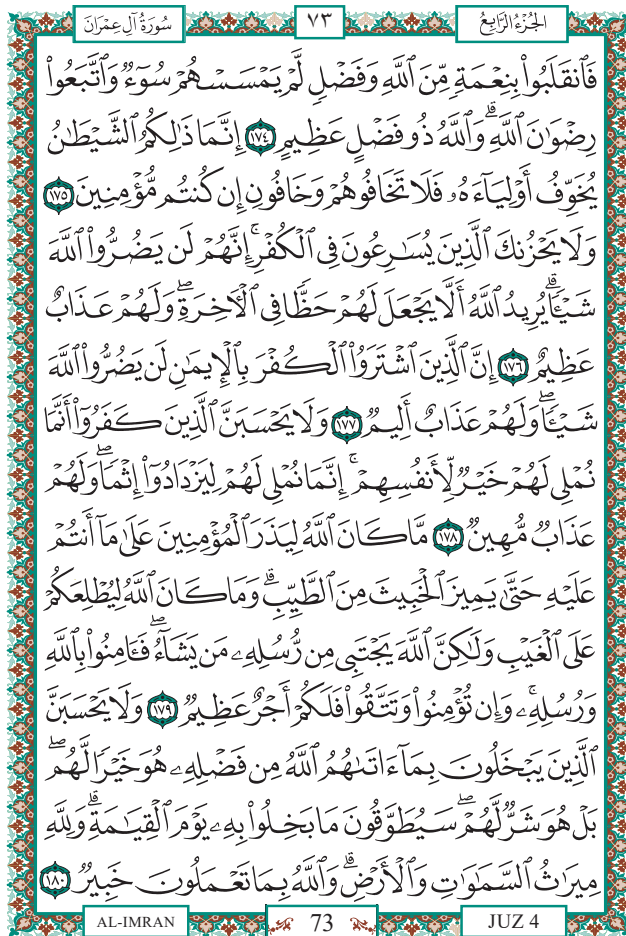 سُورَةُ آلِ عِمْرَانَ ٧٣ الجُزْءُ الرَّابِعُ
فَٱنقَلَبُوا۟ بِنِعْمَةٍ مِّنَ ٱللَّهِ وَفَضْلٍ لَّمْ يَمْسَسْهُمْ سُوٓءٌ وَٱتَّبَعُوا۟
رِضْوَٰنَ ٱللَّهِ ۗ وَٱللَّهُ ذُو فَضْلٍ عَظِيمٍ ١٧٤ إِنَّمَا ذَٰلِكُمُ ٱلشَّيْطَٰنُ
يُخَوِّفُ أَوْلِيَآءَهُۥ فَلَا تَخَافُوهُمْ وَخَافُونِ إِن كُنتُم مُّؤْمِنِينَ ١٧٥
وَلَا يَحْزُنكَ ٱلَّذِينَ يُسَٰرِعُونَ فِى ٱلْكُفْرِ ۚ إِنَّهُمْ لَن يَضُرُّوا۟ ٱللَّهَ
شَيْـًٔا ۗ يُرِيدُ ٱللَّهُ أَلَّا يَجْعَلَ لَهُمْ حَظًّا فِى ٱلْـَٔاخِرَةِ ۖ وَلَهُمْ عَذَابٌ
عَظِيمٌ ١٧٦ إِنَّ ٱلَّذِينَ ٱشْتَرَوُا۟ ٱلْكُفْرَ بِٱلْإِيمَٰنِ لَن يَضُرُّوا۟ ٱللَّهَ
شَيْـًٔا ۖ وَلَهُمْ عَذَابٌ أَلِيمٌ ١٧٧ وَلَا يَحْسَبَنَّ ٱلَّذِينَ كَفَرُوٓا۟ أَنَّمَا
نُمْلِى لَهُمْ خَيْرٌ لِّأَنفُسِهِمْ ۚ إِنَّمَا نُمْلِى لَهُمْ لِيَزْدَادُوٓا۟ إِثْمًا ۖ وَلَهُمْ
عَذَابٌ مُّهِينٌ ١٧٨ مَّا كَانَ ٱللَّهُ لِيَذَرَ ٱلْمُؤْمِنِينَ عَلَىٰ مَآ أَنتُمْ
عَلَيْهِ حَتَّىٰ يَمِيزَ ٱلْخَبِيثَ مِنَ ٱلطَّيِّبِ ۗ وَمَا كَانَ ٱللَّهُ لِيُطْلِعَكُمْ
عَلَى ٱلْغَيْبِ وَلَٰكِنَّ ٱللَّهَ يَجْتَبِى مِن رُّسُلِهِۦ مَن يَشَآءُ ۖ فَـَٔامِنُوا۟ بِٱللَّهِ
وَرُسُلِهِۦ ۚ وَإِن تُؤْمِنُوا۟ وَتَتَّقُوا۟ فَلَكُمْ أَجْرٌ عَظِيمٌ ١٧٩ وَلَا يَحْسَبَنَّ
ٱلَّذِينَ يَبْخَلُونَ بِمَآ ءَاتَىٰهُمُ ٱللَّهُ مِن فَضْلِهِۦ هُوَ خَيْرًا لَّهُم ۖ
بَلْ هُوَ شَرٌّ لَّهُمْ ۖ سَيُطَوَّقُونَ مَا بَخِلُوا۟ بِهِۦ يَوْمَ ٱلْقِيَٰمَةِ ۗ وَلِلَّهِ
مِيرَٰثُ ٱلسَّمَٰوَٰتِ وَٱلْأَرْضِ ۗ وَٱللَّهُ بِمَا تَعْمَلُونَ خَبِيرٌ ١٨٠
AL-IMRAN 73 JUZ 4